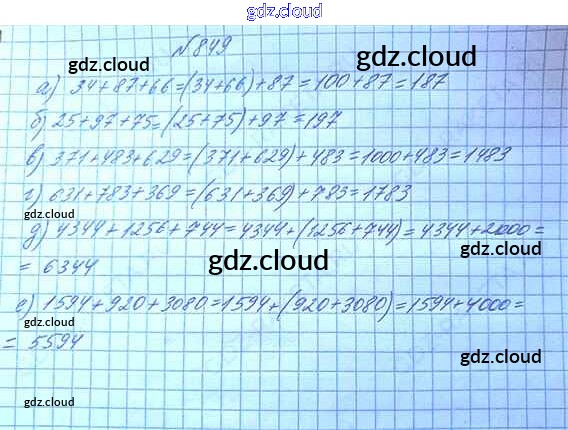 gdz.cloud
№849
gdz.cloud
gdz.cloud
а) 34+87+66=(34+66)+87=100+87=187
б) 25+97+75=(25+75)+97=197
в) 371+483+629=(371+629)+483=1000+483=1483
г) 631+783+369=(631+369)+783=1783
gdz.cloud
gdz.cloud
д) 4344+1256+744=4344+(1256+744)=4344+2000=
= 6344
gdz.cloud
gdz.cloud
е) 1594+920+3080=1594+(920+3080)=1594+4000=
gdz.cloud
= 5594
gdz.cloud
gdz.cloud